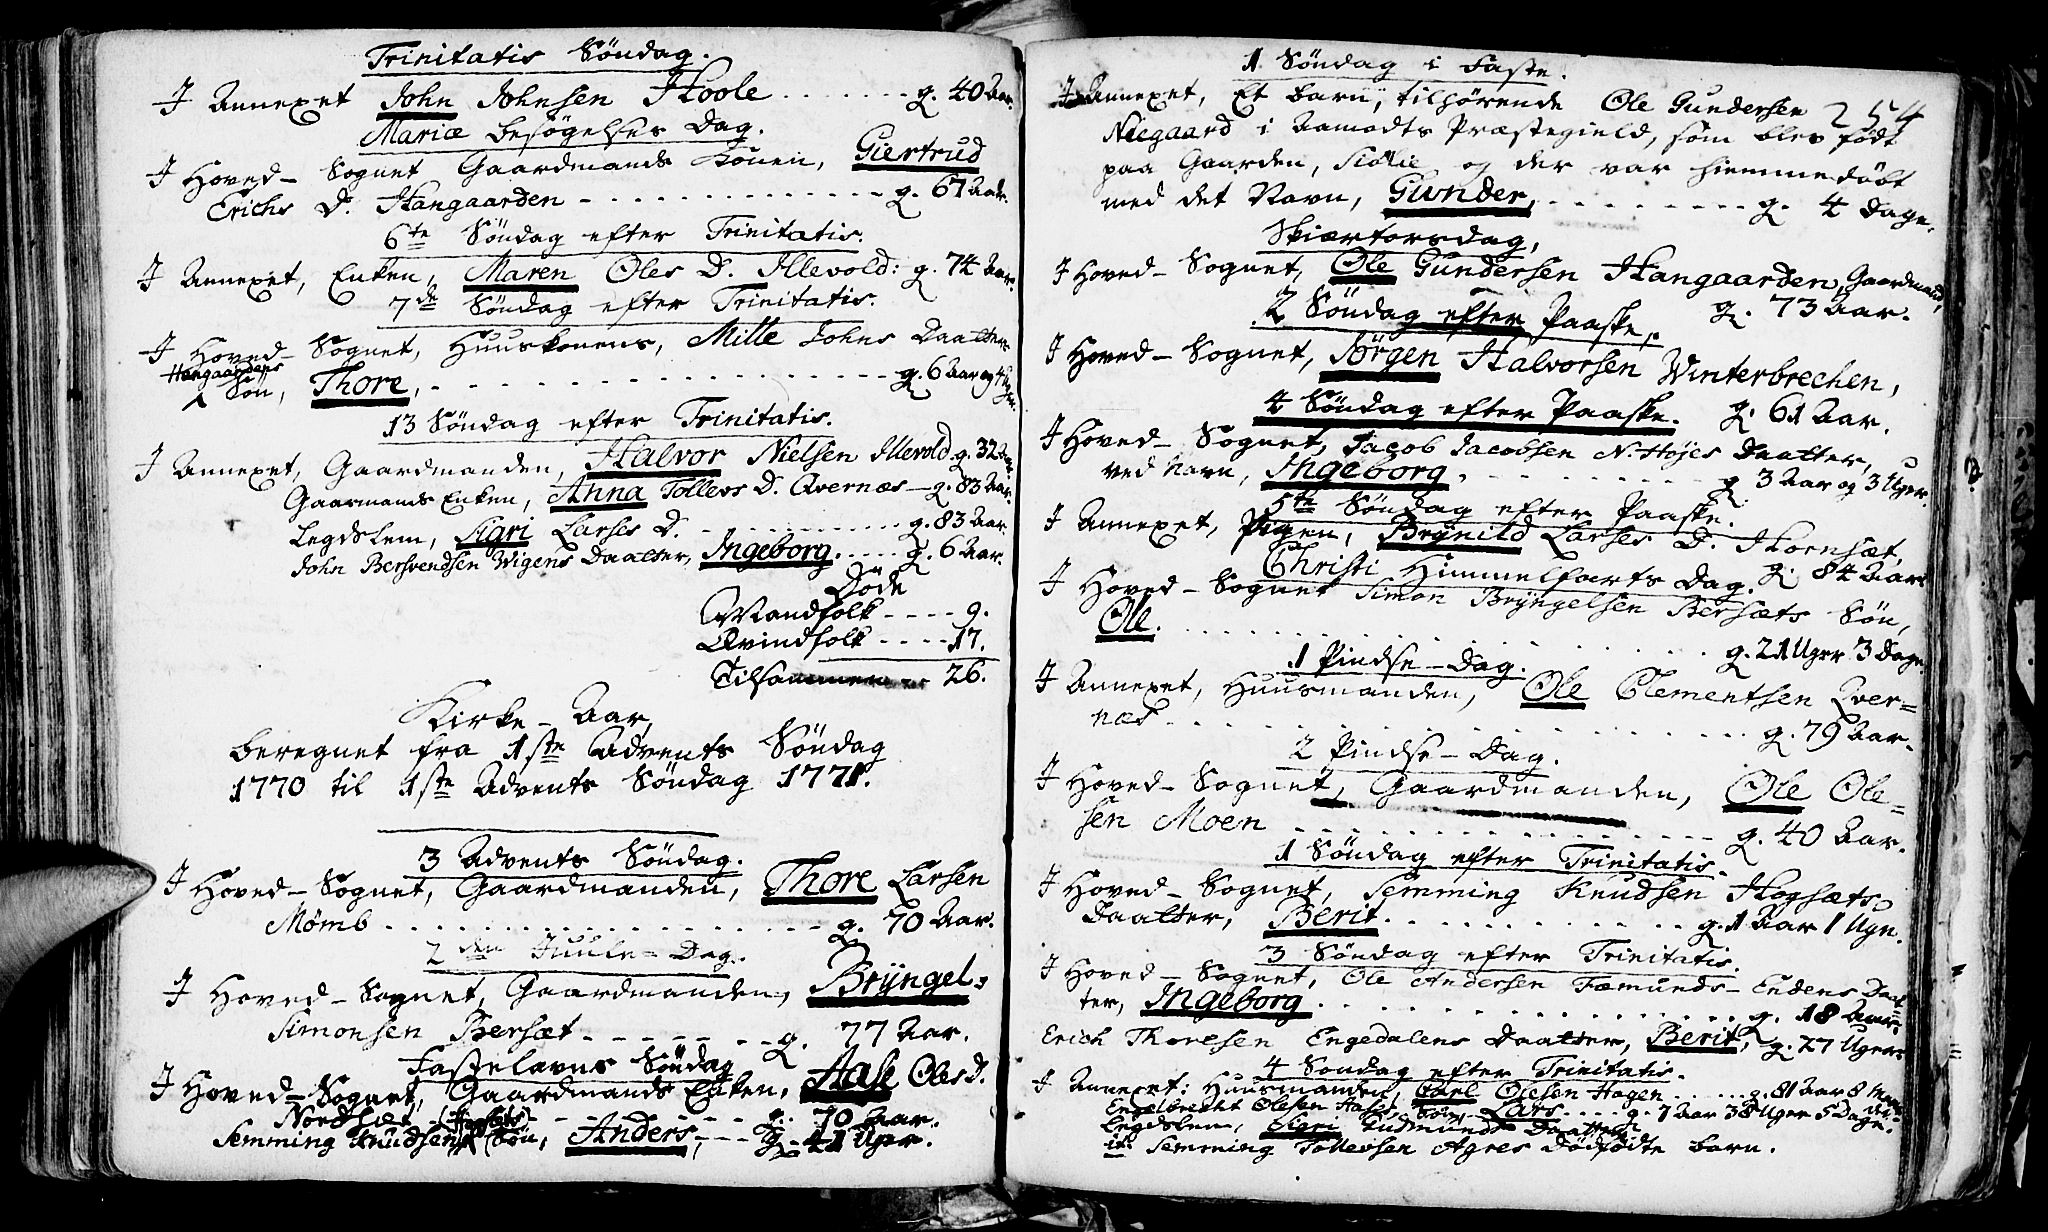 Trinitatis Søndag.
I Annexet John Johnsen Hoole . . . . . . . g. 40 Aar.
Mariæ Besøgelses Dag.
I Hoved-Sognet Gaardmands Konen, Giertrud
Erichs D. Hangaarden - . . . . . . . . . . g. 67 Aar.
6te Søndag efter Trinitatis.
I Annexet, Enken, Maren Oles D. Illevold: g. 74 Aar.
7de Søndag efter Trinitatis.
I Hoved-Sognet, Huuskonens, Mille Johns Daatters
Hangaardens
Søn, Thore, . . . . . . . . . . . . g. 6 Aar og 4
13 Søndag efter Trinitatis.
I Annexet, Gaardmanden, Halvor Nielsen Illevold g. 32 Aar.
Gaarmands Enken, Anna Tollevs D. Qvernæs - g. 83 Aar.
Legdslem, Sigri Larses D. . . . . . . . . g. 83 Aar.
John Bersvendsen Wigens Daatter, Ingeborg. . . . . g. 6 Aar.
Døde
Mandfolk - - - - 9.
Qvindfolk - - - - 17.
Tilsammen - - 26.
Kirke-Aar,
beregnet fra 1ste Advents Søndag
1770 til 1ste Advents Søndag 1771.
3 Advents Søndag.
I Hoved-Sognet, Gaardmanden, Thore Larsen
Mømb . . . . . . . . . . . . . g. 70 Aar.
2den Juule-Dag.
I Hoved-Sognet, Gaardmanden, Bryngel
Simonsen Bersæt - - - - - - g. 77 Aar.
Fastelavns Søndag
I Hoved-Sognet, Gaardmands Enken, Aase Oles D.
- - - - - - - g. 70 Aar.
Semming Knudsens Søn, Anders, - - - g. 41 Uger.
1 Søndag i Faste.
254
I Annexet, Et Barn, tilhørende Ole Gundersen
Neegaard i Aamodts Præstegield, som blev født
paa Gaarden, og der var hiemmedøbt
med det Navn, Gunder, . . . . . . . . g. 4 Dage.
Skiærtorsdag,
I Hoved-Sognet, Ole Gundersen Hangaarden, Gaardmand,
g. 73 Aar.
2 Søndag efter Paaske,
I Hoved-Sognet, Jørgen Halvorsen Winterbrechen,
g. 61 Aar.
4 Søndag efter Paaske.
I Hoved-Sognet, Jacob Jacobsen N. Højes Daatter,
ved Navn, Ingeborg. . . . . . . . . g. 3 Aar og 3 Uger.
5te Søndag efter Paaske.
I Annexet, Pigen, Brynild Larses D. Hornsæt,
g. 84 Aar.
Christi Himmelfarts Dag.
I Hoved-Sognet Simon Bryngelsen Bersæts Søn,
Ole. . . . . . . . . . . . . . . g. 21 Uger 3 Dage.
1 Pindse-Dag.
I Annexet, Huusmanden, Ole Clementsen Qver=
næs - . . . . . . . . . . . . . . g. 79 Aar.
2 Pindse-Dag.
I Hoved-Sognet, Gaardmanden, Ole Ole=
sen Moen . . . . . . . . . . . . . g. 40 Aar.
1 Søndag efter Trinitatis.
I Hoved-Sognet, Semming Knudsen Hogsæts
Daatter, Berit. . . . . . . . . . . . g. 1 Aar 1 Uge.
3 Søndag efter Trinitatis.
I Hoved-Sognet, Ole Andersen Fæmunds-Endens Daat=
ter, Ingeborg . . . . . . . . . . . . . g. 18 Aar.
Erich Thoresen Engedalens Daatter, Berit, g. 27 Uger.
4 Søndag efter Trinitatis.
I Annexet: Huusmanden, Carl Olesen Hagen . . . . . g. 81 Aar 8
Engelbrecht Olesen Søn, Lars . . . . . g. 7 Aar 38 Uger 5 Dage.
Legdslem, Sigri Gudmunds Daatter
it: Semming Tollevsen Agres Dødfødte Barn.